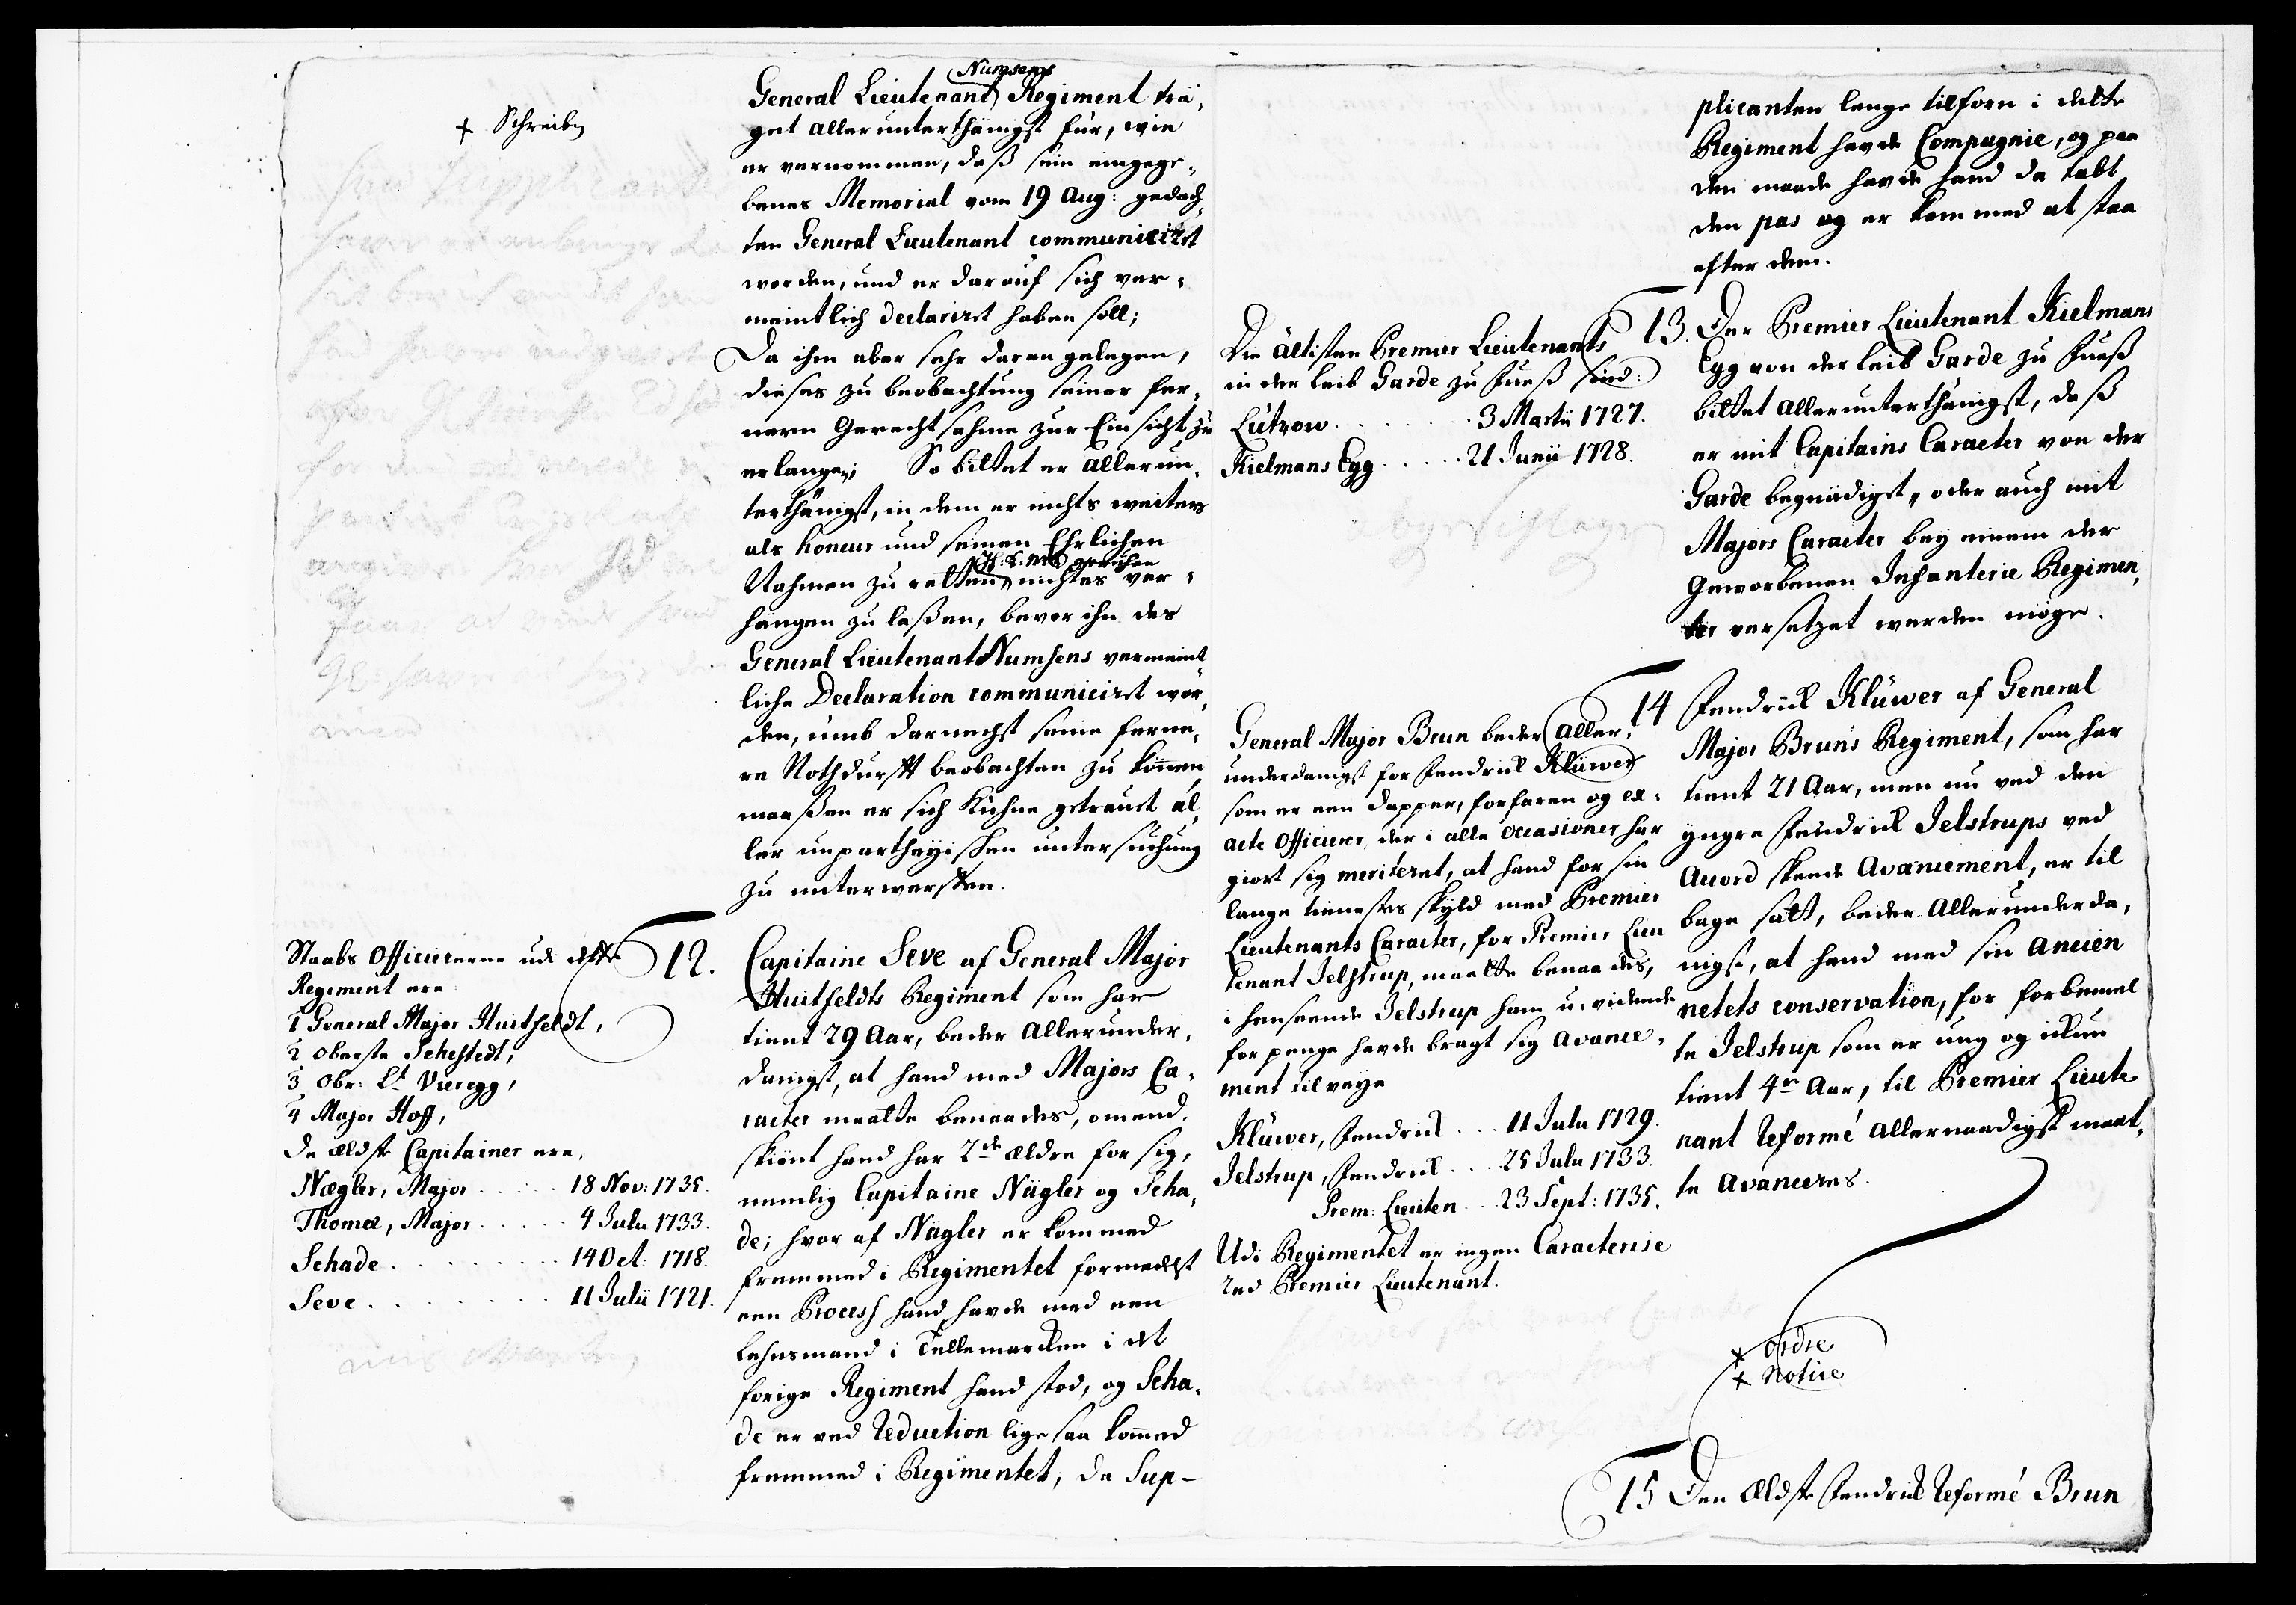 + Schreiben
Numsens
General Lieutenant Regiment trä-
get allerunterthänigst für, wie
er vernommen, daß sein eingege-
benes Memorial vom 19 Aug: gedach-
ten General Lieutenant communiciret
worden, und er darauf sich ver-
meintlich declariret haben soll;
Da ihm aber sehr daran gelegen,
dieses zu beobachtung seiner fer-
nern Gerechtsahme zur Einsicht zu
erlangen; So bittet er allerun-
terthänigst, in dem er nichts weiters
als honeur und seinen Ehrlichen
Nahmen zu retten, nichtes ver-
hängen zu laßen, bevor ihn des
General Lieutenant Numsens vermeint-
liche Declaration communiciret wor-
den, umb darnechst seine ferne-
re Nothdurfft beobachten zu können
maaßen er sich Kühne getrauet al-
ler unpartheyischen untersuchung
zu unterwerffen.
Staabs Officiererne udi dette
Regiment ere
1 General Major Huitfeldt,
2 Oberste Sehestedt,
3 Obr: Lt Vieregg,
4 Major Hoff,
de ældste Capitainer ere,
Nægler, Major . . . . . 18 Nov: 1735.
Thomæ, Major . . . . . 4 Julii 1733.
Schade . . . . . . . . 14 Oct: 1718.
Seve . . . . . . . . 11 Julii 1721.
12. Capitaine Seve af General Major
Huitfeldts Regiment som har
tient 29 Aar, beder allerunder-
danigst, at hand med Majors Ca-
racter maatte benaades, omend-
skiönt hand har 2de ældre for sig,
nemlig Capitaine Nägler og Scha-
de; hvor af Nägler er kommed
fremmed i Regimentet formedelst
een Process hand havde med een
Lehnsmand i Tellemarcken i det
forige Regiment hand stod, og Scha-
de er ved Reduction lige saa kommed
fremmed i Regimentet, da Sup-
plicanten lenge tilforn i dette
Regiment havde Compagnie, og paa
den maade havde hand da tabt
den pas og er kommed at staa
efter dem.
Die ältisten Premier Lieutenants
in der Leib Garde zu Fueß sind:
Lützow . . . . . . . 3 Martii 1727.
Kielmans Egg . . . . . 21 Junii 1728.
13. Der Premier Lieutenant Kielmans
Egg von der Leib Garde zu Fueß
bittet allerunterthänigst, daß
er mit Capitains Caracter von der
Garde begnädiget, oder auch mit
Majors Caracter bey einem der
Geworbenen Infanterie Regimen-
ter versetzet werden möge.
General Major Brun beder aller-
underdanigst for Fendrick Klüwer
som er een dapper, forfaren og ex-
acte Officerer, der i alle occasioner har
giort sig meriteret, at hand for sin
lange tienestes skyld med Premier
Lieutenants Caracter, for Premier Lieu
tenant Jelstrup, maatte benaades,
i henseende Jelstrup ham u-vidende
for penge havde bragt sig avance-
ment til veye
Klüwer, Fendrick . . . 11 Julii 1729.
Jelstrup, Fendrick . . . 25 Julii 1733.
Prem: Lieuten . . 23 Sept: 1735.
Udi Regimentet er ingen Caracterise
red Premier Lieutenant.
14 Fendrick Klüwer af General
Major Bruns Regiment, som har
tient 21 Aar, men nu ved den
yngre Fendrick Jelstrups ved
Accord skeede Avancement, er til
bage satt, beder allerunderda-
nigst, at hand med sin ancien
netets conservation, for forbemel
te Jelstrup som er ung og ickun
tient 4re Aar, til Premier Lieute
nant Reformé allernaadigst maat-
te avanceres.
+ Ordre
+ Notice
15 Den ældste Fendrick Reformé Brun